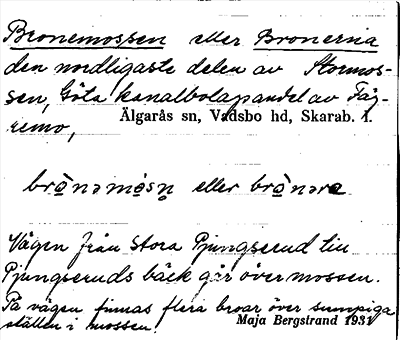 Bronemossen eller Bronerna
den nordligaste delen av Stormos-
sen, Göta kanalbolagsandel av Fäg-
remo,
Älgarås sn, Vadsbo hd, Skarab. l.
brò̤nəmo̤sn̥ eller brò̤nəra
Vägen från Stora Pjungserud till
Pjungseruds bäck går över mossen.
På vägen finnas flera broar över sumpiga
ställen i mossen.
Maja Bergstrand 1931